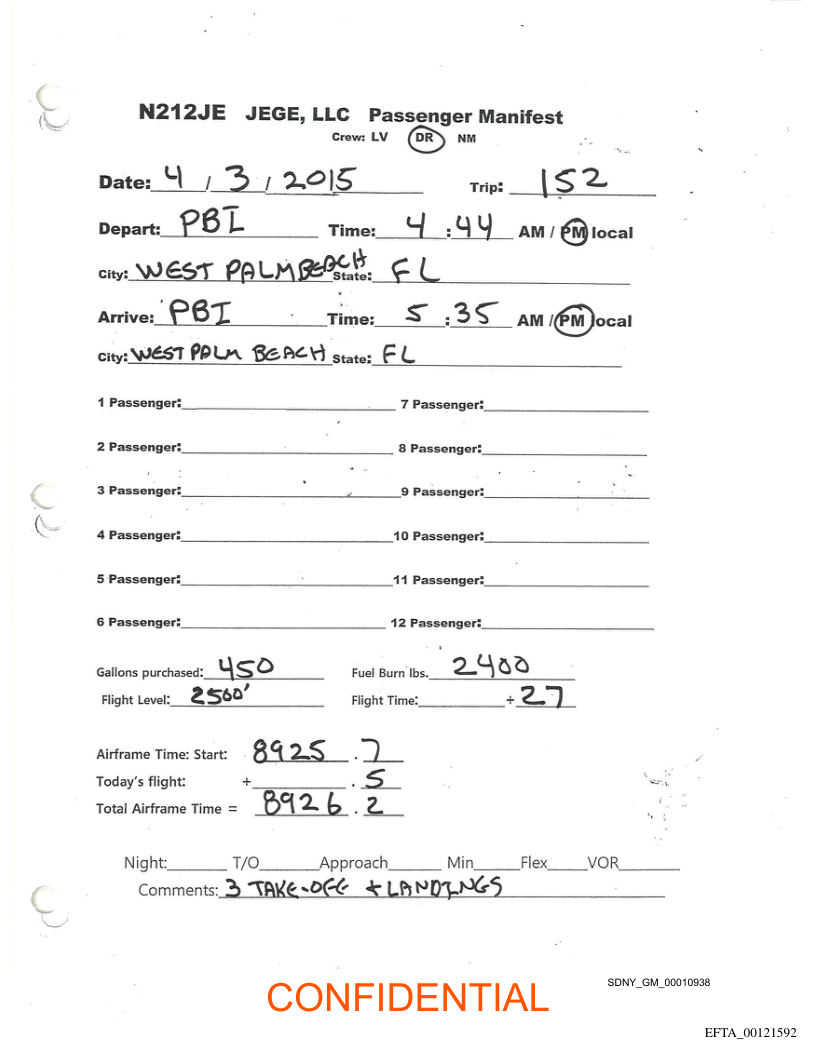 N212JE JEGE, LLC Passenger Manifest
Crew: LV DR NM
Date: 4 / 3 / 2015 Trip: 152
Depart: PBI Time: 4 : 44 AM / PM local
City: WEST PALM BEACH State: FL
Arrive: PBI Time: 5 : 35 AM / PM local
City: WEST PALM BEACH State: FL
1 Passenger: 7 Passenger:
2 Passenger: 8 Passenger:
3 Passenger: 9 Passenger:
4 Passenger: 10 Passenger:
5 Passenger: 11 Passenger:
6 Passenger: 12 Passenger:
Gallons purchased: 450 Fuel Burn lbs. 2400
Flight Level: 2500' Flight Time: + 27
Airframe Time: Start: 8925 . 7
Today's flight: + . 5
Total Airframe Time = 8926 . 2
Night: T/O Approach Min Flex VOR
Comments: 3 TAKE-OFF + LANDINGS
SDNY_GM_00010938
CONFIDENTIAL
EFTA_00121592